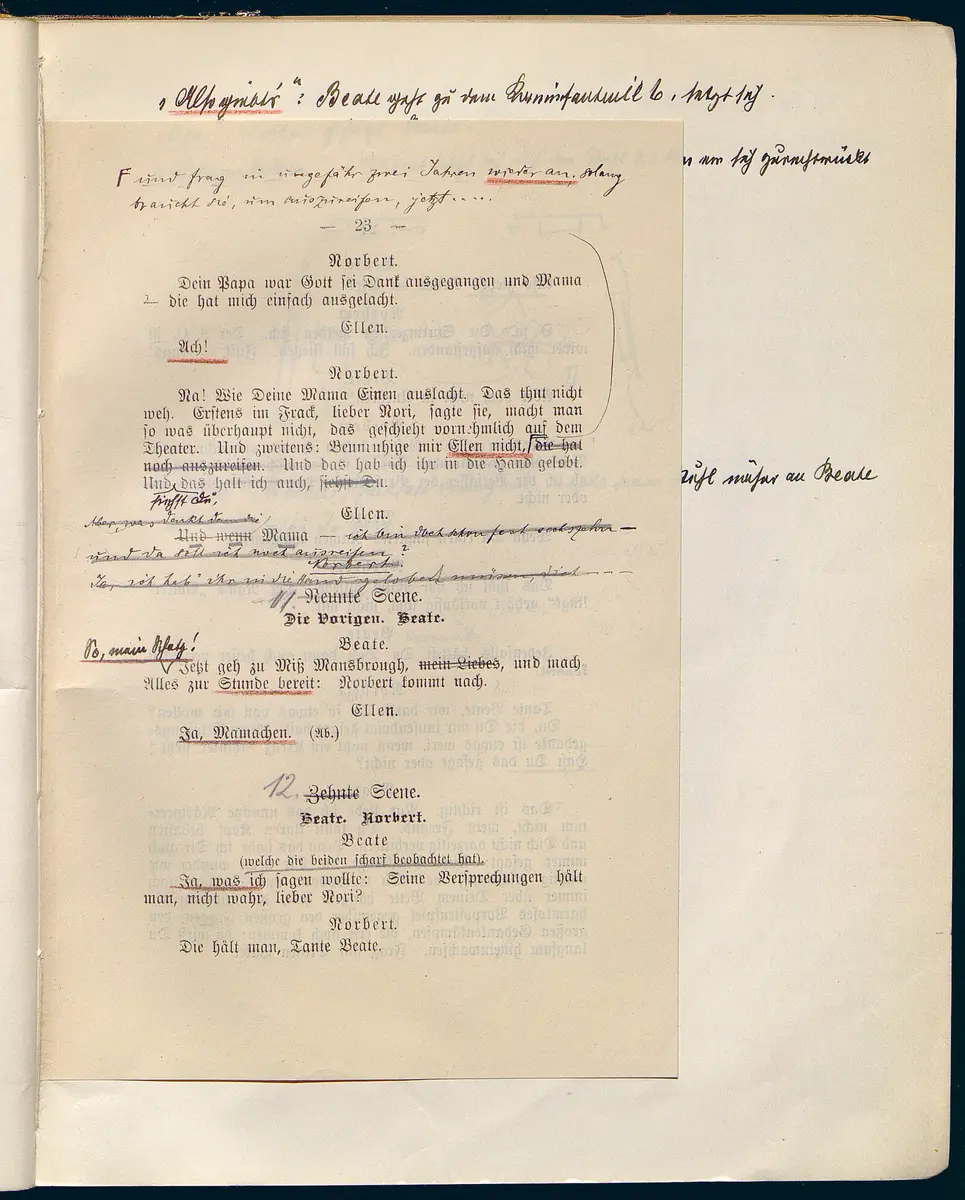 „Also gieb's“: Beate geht zu dem Kaminfauteuil b, setzt sich.
sich zurechtrückt
F und frag in ungefähr zwei Jahren wieder an. Solang
braucht sie, um auszureifen, jetzt .....
— 23 —
Norbert.
Dein Papa war Gott sei Dank ausgegangen und Mama
— die hat mich einfach ausgelacht.
Ellen.
Ach!
Norbert.
Na! Wie Deine Mama Einen auslacht. Das thut nicht
weh. Erstens im Frack, lieber Nori, sagte sie, macht man
so was überhaupt nicht, das geschieht vornehmlich auf dem
Theater. Und zweitens: Beunruhige mir Ellen nicht, die hat
noch auszureifen. Und das hab ich ihr in die Hand gelobt.
Und das halt ich auch, siehst Du.
siehst Du,
Ellen.
Aber, was denkt denn die
Und wenn Mama — ich bin doch schon fast sechzehn —
und da soll ich noch ausreifen?
Norbert.
Ja, ich hab' ihr in die Hand geloben müssen, dich — — —
11. Neunte Scene.
Die Vorigen. Beate.
So, mein Schatz!
Beate.
Jetzt geh zu Miß Mansbrough, mein Liebes, und mach
Alles zur Stunde bereit: Norbert kommt nach.
stuhl näher an Beate
Ellen.
Ja, Mamachen. (Ab.)
12. Zehnte Scene.
Beate. Norbert.
Beate
(welche die beiden scharf beobachtet hat).
Ja, was ich sagen wollte: Seine Versprechungen hält
man, nicht wahr, lieber Nori?
Norbert.
Die hält man, Tante Beate.